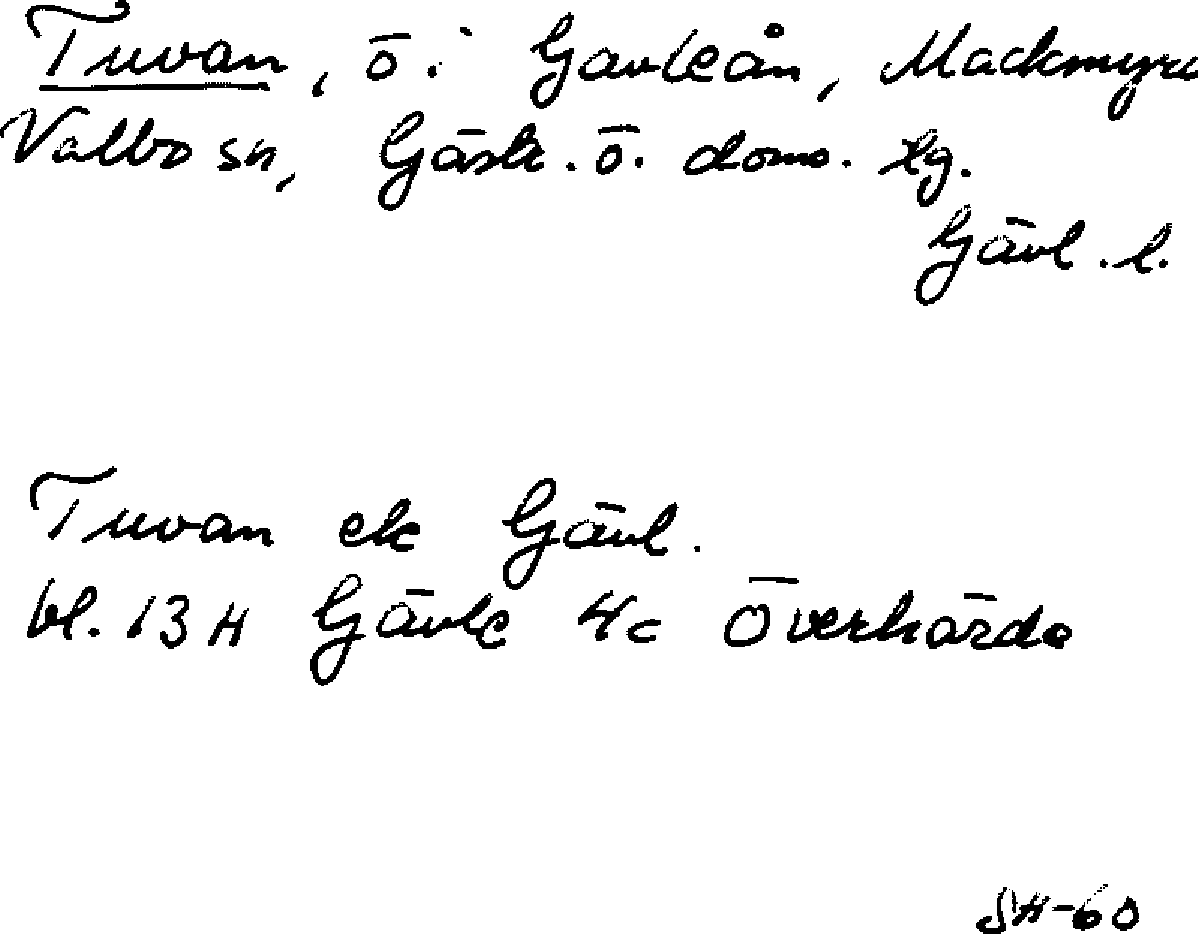 Tuvan, ö i Gavleån, Mackmyra
Valbo sn, Gästr. ö. doms. lg.
Gävl. l.
Tuvan ek Gävl.
bl. 13 H Gävle 4c Överhärde
SH-60